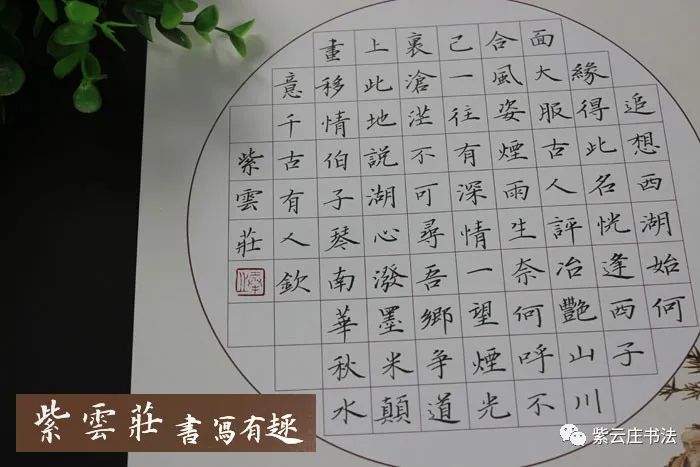 追想西湖始何
緣得此名恍逢西子
面大服古人評冶艷山川
合風姿煙雨生奈何呼不
己一往有深情一望煙光
裏滄茫不可尋吾鄉爭道
上此地說湖心潑墨米顛
畫移情伯子琴南華秋水
意千古有人欽
紫雲莊
紫雲莊書寫有趣
紫云庄书法